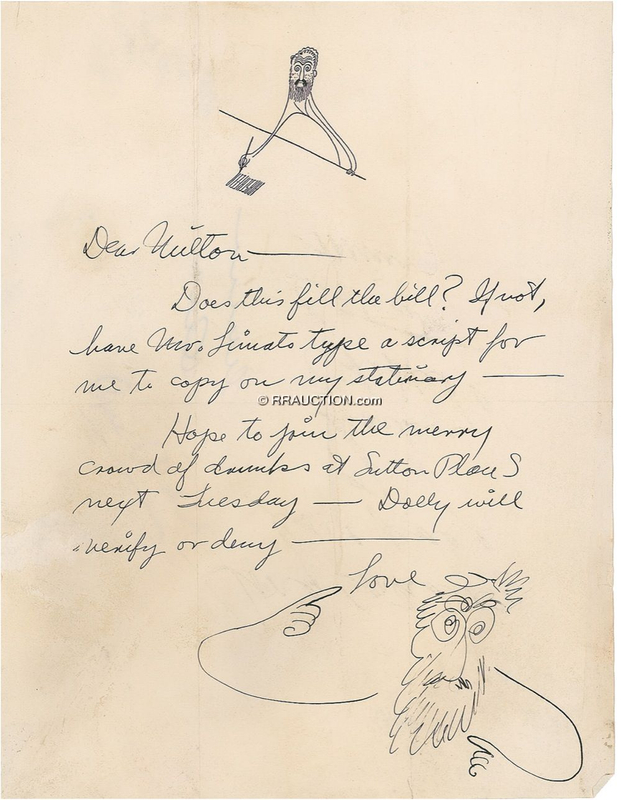 Dear Milton—
Does this fill the bill? If not,
have Mrs. Simats type a script for
me to copy on my stationary —
© RRAUCTION.com
Hope to join the merry
crowd of drunks at Sutton Place S
next Tuesday — Dolly will
verify or deny —
Love